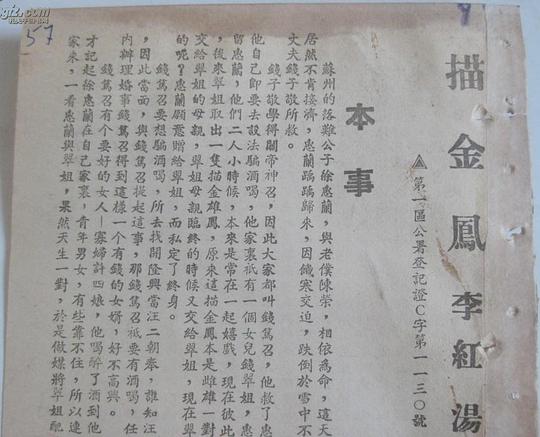 57
描金鳳李紅湯
第一區公署登記證C字第一一三〇號
本事
蘇州的落難公子徐惠蘭，與老僕陳榮，相依爲命，這天
居然不肯接濟，惠蘭踽踽歸來，因饑寒交迫，跌倒於雪中不
丈夫錢子敬所救。
錢子敬學得關帝神召，因此大家都叫錢篤召，他救了惠
他自己即要去設法騙酒喝，他家裏祇有一個女兒錢翠姐，惠
留惠蘭，他們二人小時候，本來是常在一起嬉戲，現在彼此
，後來翠姐取出一隻描金雄鳳，原來這描金鳳本是雌雄一對
交給翠姐的母親，翠姐母親臨終的時候又交給翠姐，現在翠
的呢？惠蘭願意贈給翠姐，而私定了終身。
錢篤召要想騙酒喝，所去找開隆興當汪二朝奉，誰知汪
，因此當面，與錢篤召提起這事，那錢篤召祇要有酒喝，任
內辦理婚事錢篤召得到這樣一個有錢的女婿，好不高興。
錢篤召有個要好的女人—寡婦許四娘，他喝醉了酒到他
才記起徐惠蘭在自己家裏，青年男女，有些靠不住，所以連
家來，一看惠蘭與翠姐，果然天生一對，於是做媒將翠姐配